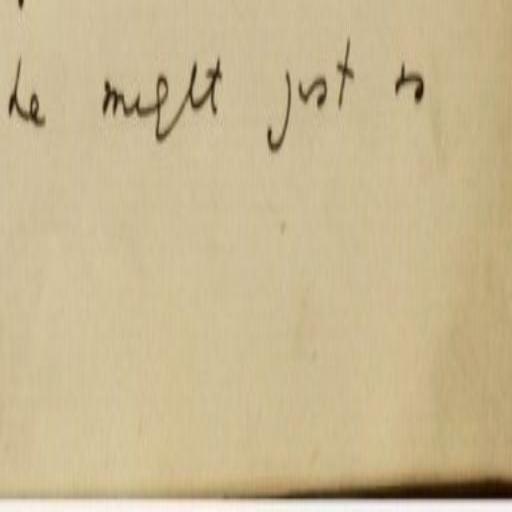 he might just as